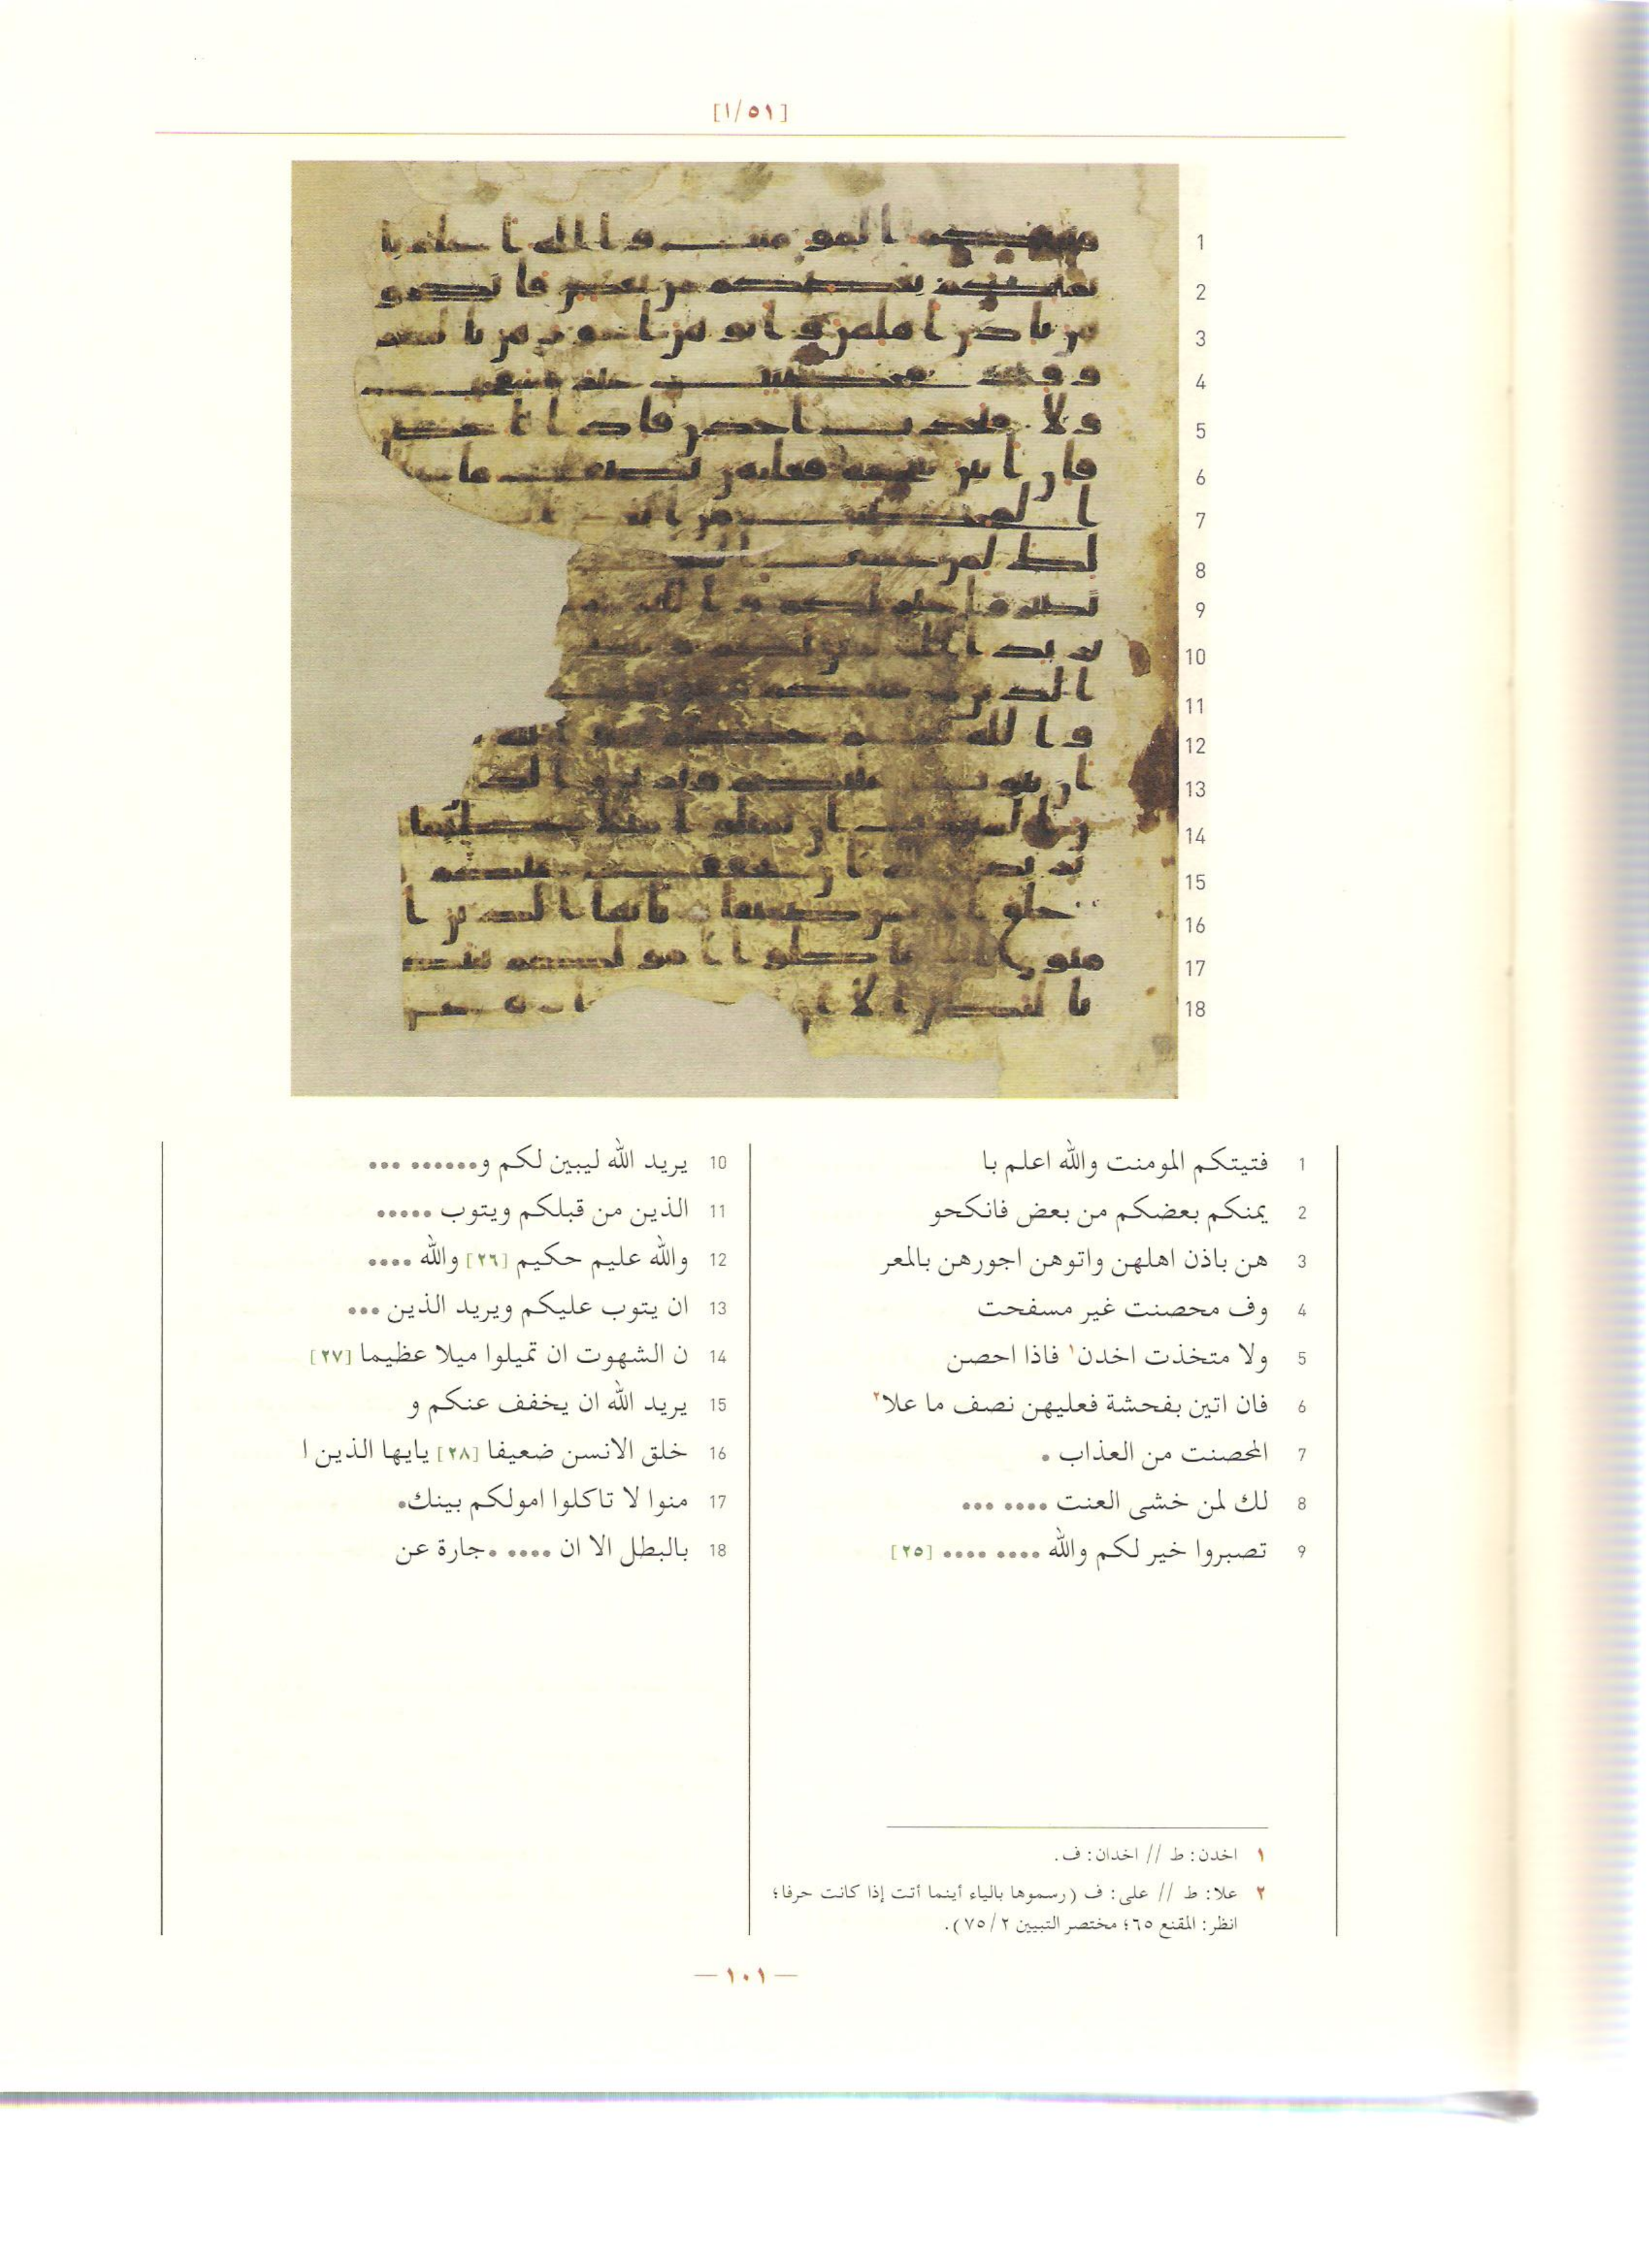 [١/٥١]
1
2
3
4
5
6
7
8
9
10
11
12
13
14
15
16
17
18
1 فتيتكم المومنت والله اعلم با
2 يمنكم بعضكم من بعض فانكحو
3 هن باذن اهلهن واتوهن اجورهن بالمعر
4 وف محصنت غير مسفحت
5 ولا متخذت اخدن١ فاذا احصن
6 فان اتين بفحشة فعليهن نصف ما علا٢
7 المحصنت من العذاب •
8 لك لمن خشى العنت •••• •••
9 تصبروا خير لكم والله •••• •••• [٢٥]
10 يريد الله ليبين لكم و•••••• •••
11 الذين من قبلكم ويتوب •••••
12 والله عليم حكيم [٢٦] والله ••••
13 ان يتوب عليكم ويريد الذين •••
14 ن الشهوت ان تميلوا ميلا عظيما [٢٧]
15 يريد الله ان يخفف عنكم و
16 خلق الانسن ضعيفا [٢٨] يايها الذين ا
17 منوا لا تاكلوا امولكم بينك•
18 بالبطل الا ان •••• •جارة عن
١ اخدن: ط // اخدان: ف.
٢ علا: ط // على: ف (رسموها بالياء أينما أتت إذا كانت حرفا؛
انظر: المقنع ٦٥؛ مختصر التبيين ٢/ ٧٥).
— ١٠١ —